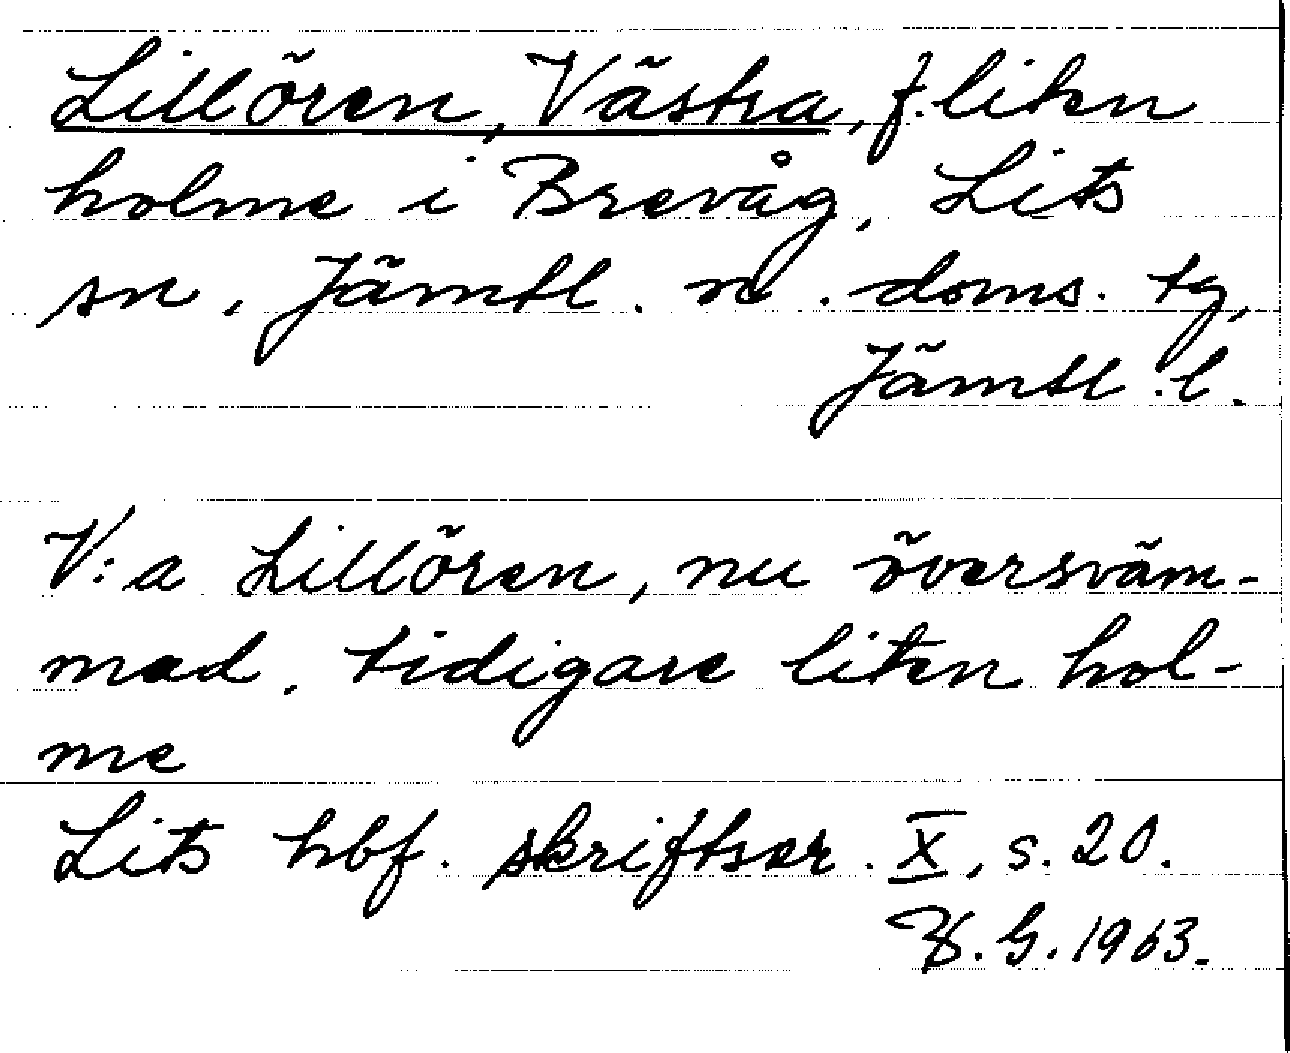 Lillören, Västra, f. liten
holme i Brevåg, Lits
sn, Jämtl. n. doms. tg,
Jämtl. l.
V:a Lillören, nu översväm-
mad, tidigare liten hol-
me
Lits hbf. skriftser. X, s. 20.
G. 1963.